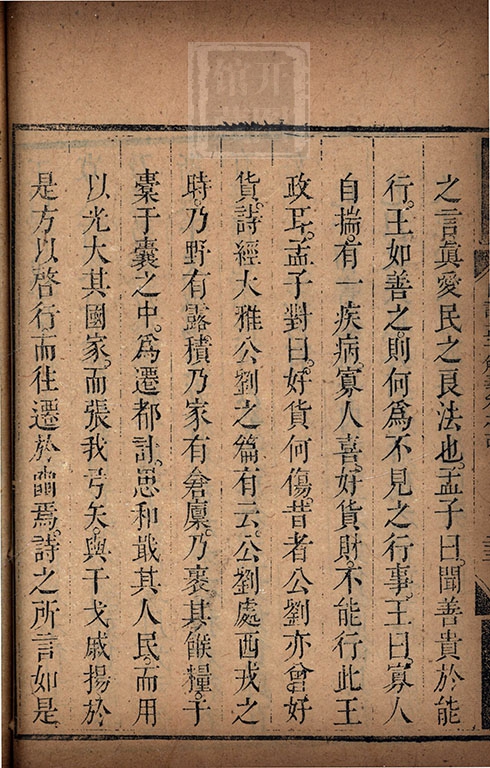 之言眞愛民之良法也孟子曰聞善貴於能
行王如善之則何爲不見之行事王曰寡人
自揣有一疾病寡人喜好貨財不能行此王
政耳孟子對曰好貨何傷昔者公劉亦曾好
貨詩經大雅公劉之篇有云公劉處西戎之
時乃野有露積乃家有倉廩乃裹其餱糧于
橐于囊之中爲遷都計思和戢其人民而用
以光大其國家而張我弓矢與干戈戚揚於
是方以啓行而往遷於豳焉詩之所言如是